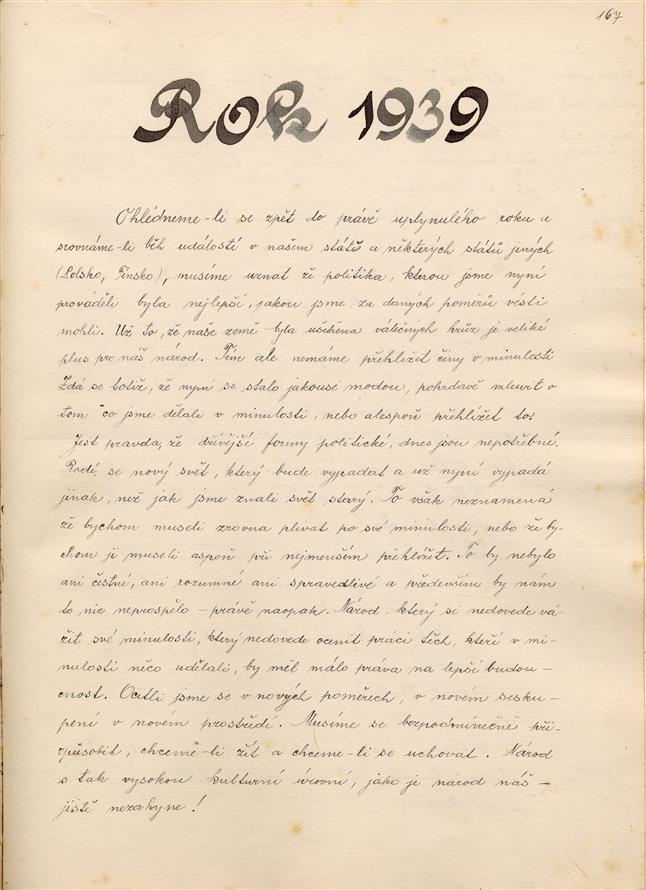 167
Rok 1939
Ohlédneme-li se zpět do právě uplynulého roku a
srovnáme-li běh událostí v našem státě a některých států jiných
(Polsko, Finsko), musíme uznat že politika, kterou jsme nyní
prováděli byla nejlepší, jakou jsme za daných poměrů vésti
mohli. Už to, že naše země byla ušetřena válečných hrůz je veliké
plus pro náš národ. Tím ale nemáme přehlížet činy v minulosti
Zdá se totiž, že nyní se stalo jakousi modou, pohrdavě mluvit o
tom co jsme dělali v minulosti, nebo alespoň přehlížet to.
Jest pravda, že dřívější formy politické, dnes jsou nepotřební.
Rodí se nový svět, který bude vypadat a už nyní vypadá
jinak, než jak jsme znali svět starý. To však neznamená
že bychom museli zrovna plivat po své minulosti, nebo že by-
chom ji museli aspoň při nejmenším přehlížet. To by nebylo
ani čestné, ani rozumné ani spravedlivé a především by nám
to nic neprospělo - právě naopak. Národ který si nedovede vá-
žit své minulosti, který nedovede ocenit práci těch, kteří v mi-
nulosti něco udělali, by měl málo práva na lepší budou-
cnost. Ocitli jsme se v nových poměrech, v novém sesku-
pení v novém prostředí. Musíme se bezpodmínečně při-
způsobit, chceme-li žít a chceme-li se uchovat. Národ
s tak vysokou kulturní úrovní, jako je národ náš -
jistě nezahyne!